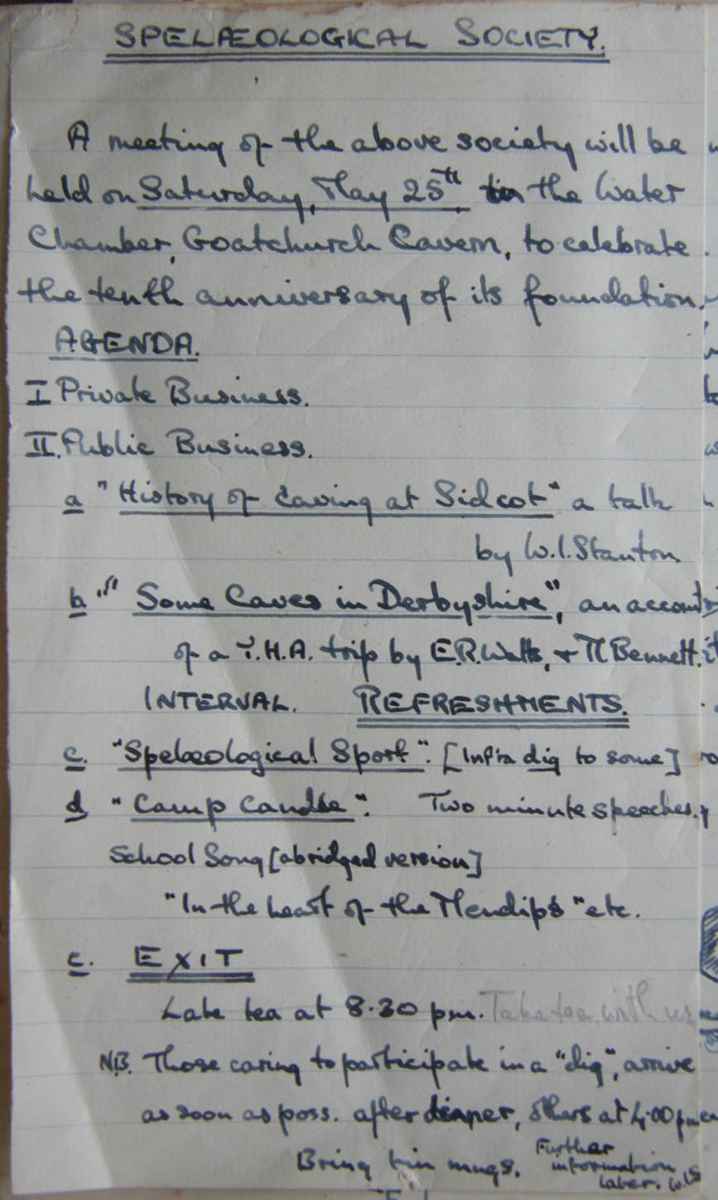 SPELÆOLOGICAL SOCIETY.
A meeting of the above society will be
held on Saturday, May 25th in the Water
Chamber, Goatchurch Cavern, to celebrate
the tenth anniversary of its foundation.
AGENDA.
I Private Business.
II. Public Business.
a "History of Caving at Sidcot" a talk
by W.I. Stanton
b "Some Caves in Derbyshire", an account
of a Y.H.A. trip by E.R. Watts, + M Bennett.
INTERVAL. REFRESHMENTS.
c. "Spelæological Sport". [Infra dig to some]
d "Camp Candle". Two minute speeches.
School Song [abridged version]
"In the heart of the Mendips" etc.
e. EXIT
Late tea at 8.30 pm. Take tea with us
N.B. Those caring to participate in a "dig", arrive
as soon as poss. after dinner, others at 4.00 pm
Bring tin mugs. Further
information
later. W.I.S